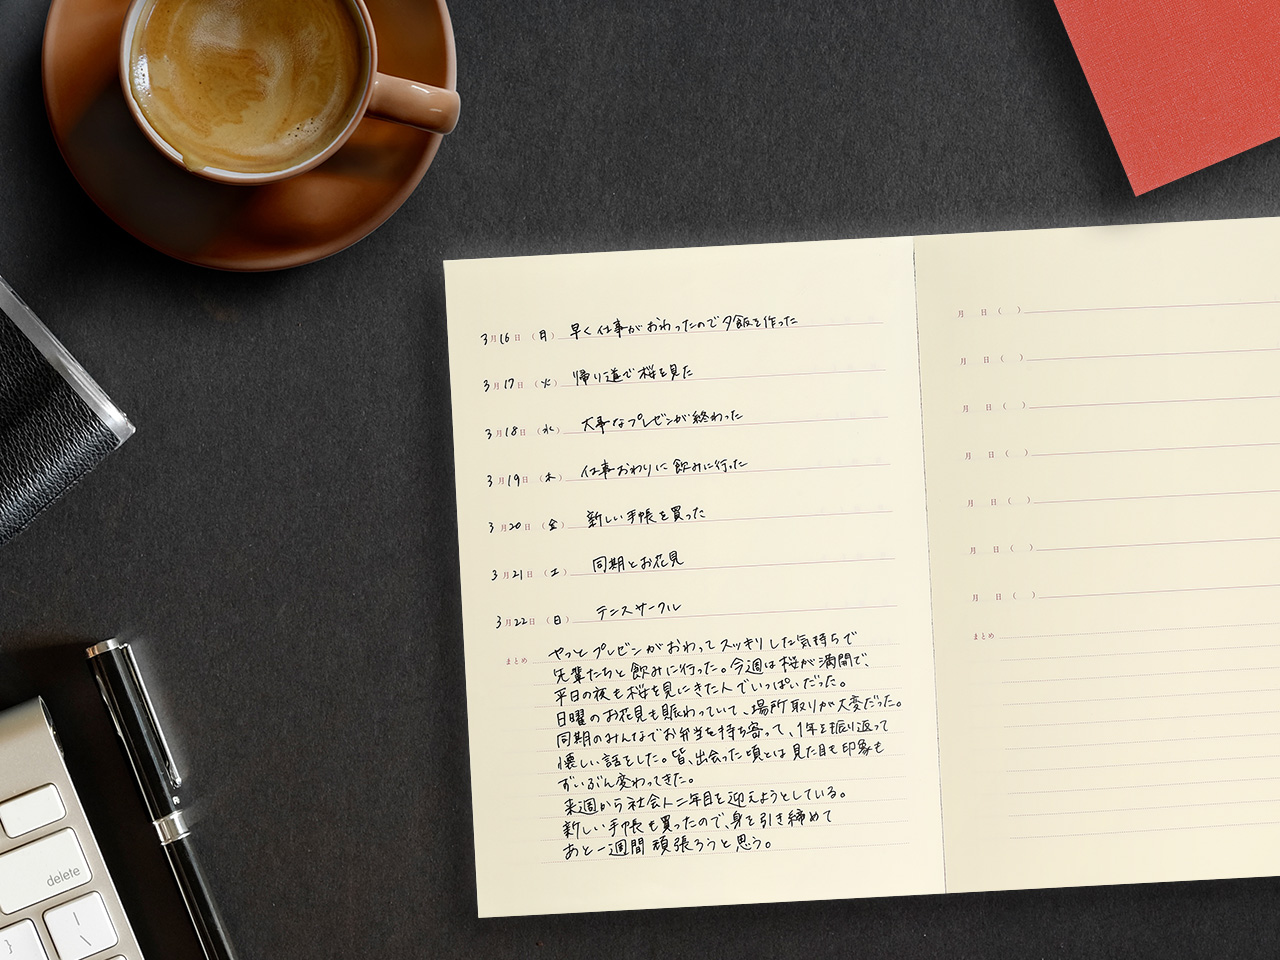 3月16日(月) 早く仕事がおわったので夕飯を作った
3月17日(火) 帰り道で桜を見た
3月18日(水) 大事なプレゼンが終わった
3月19日(木) 仕事おわりに飲みに行った
3月20日(金) 新しい手帳を買った
3月21日(土) 同期とお花見
3月22日(日) テニスサークル
まとめ やっとプレゼンがおわってスッキリした気持ちで
先輩たちと飲みに行った。今週は桜が満開で、
平日の夜も桜を見にきた人でいっぱいだった。
日曜のお花見も賑わっていて、場所取りが大変だった。
同期のみんなでお弁当を持ち寄って、1年を振り返って
懐しい話をした。皆、出会った頃とは見た目も印象も
ずいぶん変わってきた。
来週から社会人二年目を迎えようとしている。
新しい手帳も買ったので、身を引き締めて
あと一週間頑張ろうと思う。
月 日( )
月 日( )
月 日( )
月 日( )
月 日( )
月 日( )
月 日( )
まとめ
delete
|
\
}